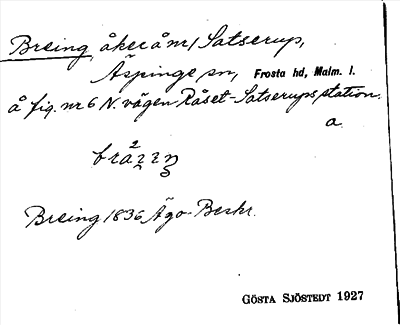 Breing, åker å m/ Satserup,
Äspinge sn, Frosta hd, Malm. l.
å fig. nr 6 N. vägen Råset-Satserups station.
a.
Breing 1836 Ägo-Beskr.
GÖSTA SJÖSTEDT 1927